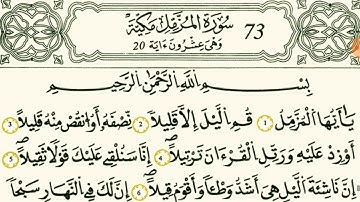 سُورَةُ الْمُزَّمِّلِ مَكِّيَّةٌ 73
وَهْيَ عِشْرُونَ ءَايَةً 20
بِسْمِ اللَّهِ الرَّحْمَٰنِ الرَّحِيمِ
يَٰٓأَيُّهَا الْمُزَّمِّلُ 1 قُمِ اِلَّيْلَ إِلَّا قَلِيلًا 2 نِّصْفَهُۥٓ أَوُ اُنقُصْ مِنْهُ قَلِيلًا 3
أَوْ زِدْ عَلَيْهِ وَرَتِّلِ الْقُرْءَانَ تَرْتِيلًا 4 اِنَّا سَنُلْقِي عَلَيْكَ قَوْلًا ثَقِيلًا 5
اِنَّ نَاشِئَةَ اَلَّيْلِ هِيَ أَشَدُّ وَطْـًٔا وَأَقْوَمُ قِيلًا 6 اِنَّ لَكَ فِي اَلنَّهَارِ سَبْحًا